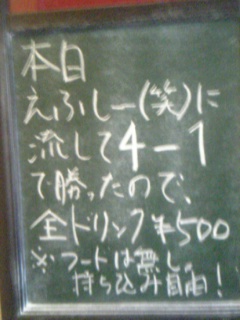 本日
えふしー(笑)に
流して4-1
で勝ったので、
全ドリンク¥500
※フードは無し。
持ち込み自由!